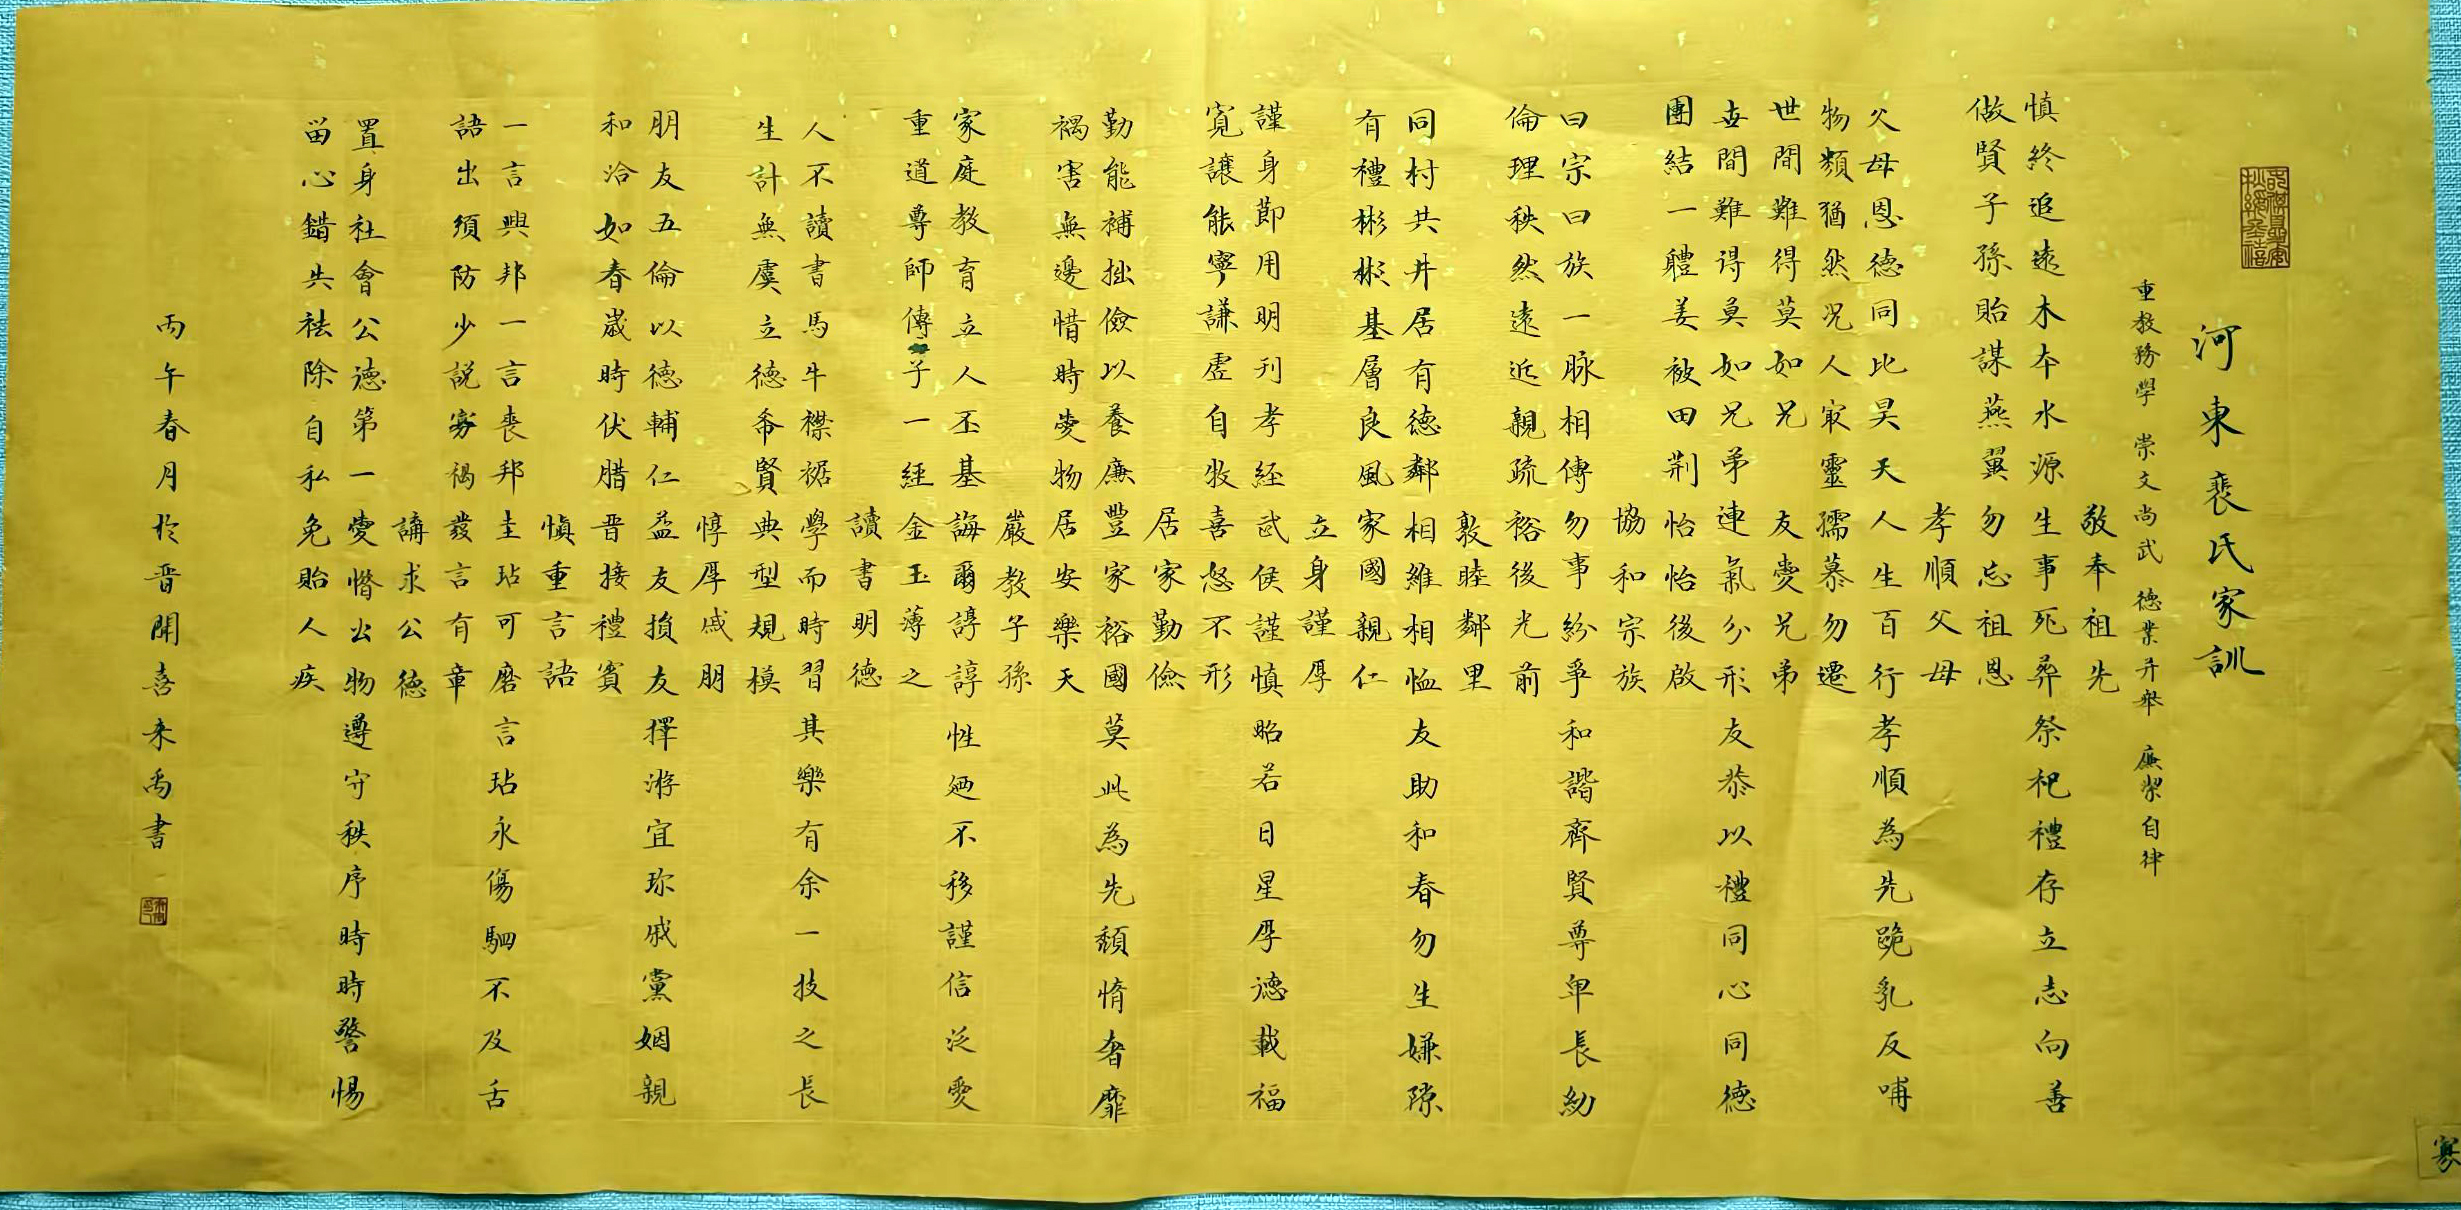 河東裴氏家訓
重教務學 崇文尚武 德業并舉 廉潔自律
敬奉祖先
慎終追遠木本水源生事死葬祭祀禮存立志向善
做賢子孫貽謀燕翼勿忘祖恩
孝順父母
父母恩德同比昊天人生百行孝順為先跪乳反哺
物類猶然况人最靈孺慕勿遷
友愛兄弟
世間難得莫如兄
世間難得莫如兄弟連氣分形友恭以禮同心同德
團結一體姜被田荆怡怡後啟
協和宗族
曰宗曰族一脉相傳勿事紛爭和諧齊賢尊卑長幼
倫理秩然遠近親疏裕後光前
敦睦鄰里
同村共井居有德鄰相維相恤友助和春勿生嫌隙
有禮彬彬基層良風家國親仁
立身謹厚
謹身節用明刊孝經武侯謹慎昭若日星厚德載福
寬讓能寧謙虛自牧喜怒不形
居家勤儉
勤能補拙儉以養廉豐家裕國莫此為先頹惰奢靡
禍害無邊惜時愛物居安樂天
嚴教子孫
家庭教育立人丕基誨爾諄諄性廼不移謹信泛愛
重道尊師傳子一經金玉薄之
讀書明德
人不讀書馬牛襟裾學而時習其樂有余一技之長
生計無虞立德希賢典型規模
惇厚戚朋
朋友五倫以德輔仁益友損友擇游宜珍戚黨姻親
和洽如春歲時伏腊晋接禮賓
慎重言語
一言興邦一言喪邦圭玷可磨言玷永傷駟不及舌
語出須防少説寡禍發言有章
講求公德
置身社會公德第一愛惜公物遵守秩序時時警惕
留心錯失祛除自私免貽人疾
丙午春月於晋聞喜来禹書